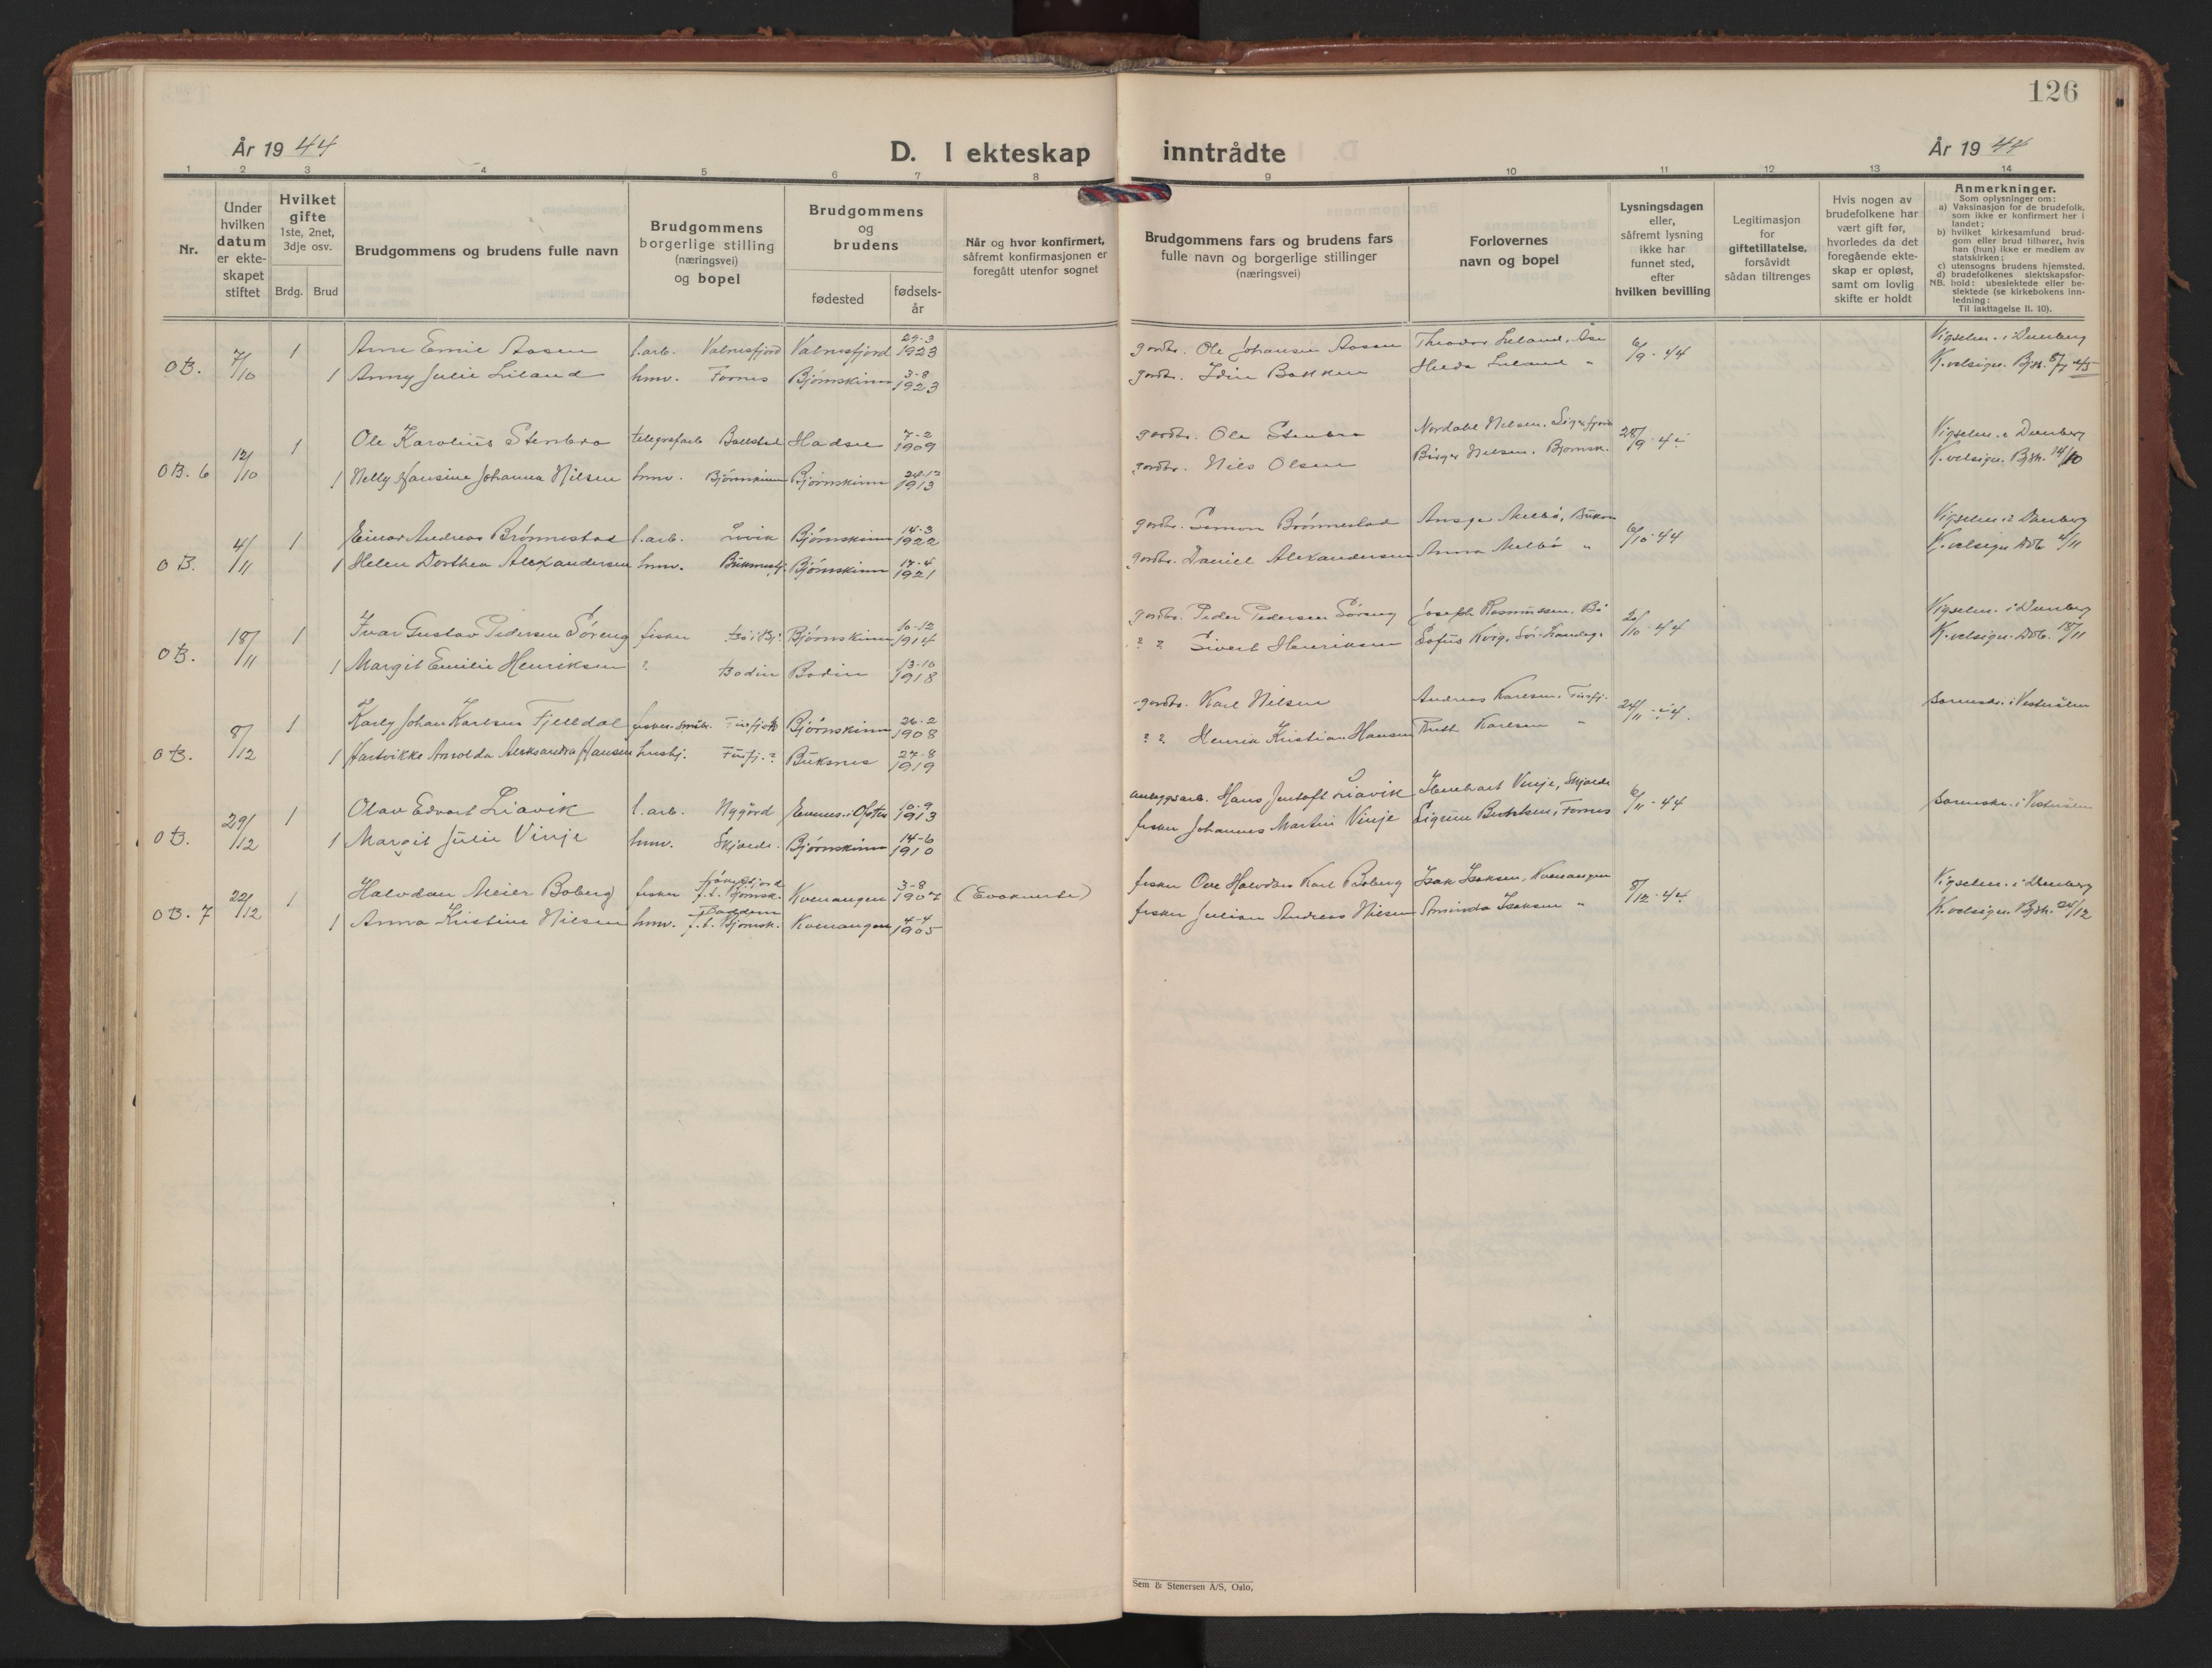 126
År 19 44
D. I ekteskap inntrådte
År 19 44
1 2 3 4 5 6 7 8 9 10 11 12 13 14
Nr.
Under hvilken datum er ekteskapet stiftet
Hvilket gifte 1ste, 2net, 3dje osv.
Brdg. Brud
Brudgommens og brudens fulle navn
Brudgommens borgerlige stilling (næringsvei) og bopel
Brudgommens og brudens
fødested
fødselsår
Når og hvor konfirmert, såfremt konfirmasjonen er foregått utenfor sognet
Brudgommens fars og brudens fars fulle navn og borgerlige stillinger (næringsvei)
Forlovernes navn og bopel
Lysningsdagen eller, såfremt lysning ikke har funnet sted, efter hvilken bevilling
Legitimasjon for giftetillatelse, forsåvidt sådan tiltrenges
Hvis nogen av brudefolkene har vært gift før, hvorledes da det foregående ekteskap er opløst, samt om lovlig skifte er holdt
Anmerkninger.
Som oplysninger om:
a) Vaksinasjon for de brudefolk, som ikke er konfirmert her i landet;
b) hvilket kirkesamfund brudgom eller brud tilhører, hvis han (hun) ikke er medlem av statskirken;
c) utensogns brudens hjemsted.
d) brudefolkenes slektskapsforhold: ubeslektede eller beslektede (se kirkebokens innledning:
NB. Til iakttagelse II. 10).
OB. 7/10 1 Arne Emil Aasen l.arb. Valnesfjord Valnesfjord 29-3 1923 gårdbr. Ole Johansen Aasen Theodor Leland, Åse 6/9-44 Vigselen i Dverberg
1 Anny Julie Leland hmv. Fornes Bjørnskinn 3-8 1923 gårdbr. Idin Bakken Hilda Leland " K.velsign. Bjsk.
OB. 6 12/10 1 Ole Karolius Stenbro telegrafarb Ballstad Hadsel 7-2 1909 gårdbr. Ole Stenbro Nordahl Nilsen, Sigerfjord 28/9-44 Vigselen i Dverberg
1 Nelly Hansine Johanna Nilsen hmv. Bjørnskinn Bjørnskinn 24-12 1913 gårdbr. Nils Olsen Birger Nilsen. Bjørnsk. K.velsign. Bjsk. 14/10
OB. 4/11 1 Einar Andreas Brönnestad l.arb. Lovik Bjørnskinn 14-3 1922 gårdbr. Simon Brönnestad Melbö, 6/10-44 Vigselen i Dverberg
1 Helen Dorthea Alexandersen hmv. Bjørnskinn 17-4 1921 gårdbr. Daniel Alexandersen Anna Melbö " K.velsign. Dvb. 4/11
OB. 18/11 1 Ivar Gustav Pedersen Söreng fisker Bjørnskinn 10-12 1914 gårdbr. Peder Pedersen Söreng Joseph Rasmussen. Bö 10-44 Vigselen i Dverberg
1 Margit Emilie Henriksen ? Bodin Bodin 13-10 1918 ? ? Sivert Henriksen K.velsign. Dvb. 18/11
OB. 8/12 1 Karly Johan Karlsen Fjelldal fisker-småbr. Bjørnskinn 26-2 1908 gårdbr. Karl Nilsen Andreas Karlsen. 24/11-44. Sorenskr. i Vesterålen
1 Hartvikke Arnolda Aleksandra Hansen hushj. Buksnes 27-8 1919 ? ? Henrik Kristian Hansen Ruth Karlsen "
OB. 29/12 1 Olav Edvart Liavik l.arb. Nygård Evenes i Ofoten 10-9 1913 anleggsarb. Hans Jentoft Liavik Vinje, Skjolde 6/11-44 Sorenskr. i Vesterålen
1 Margit Julie Vinje hmv. Bjørnskinn 14-6 1910 fisker Johannes Martin Vinje Sigrun Berthelsen, Fornes
OB. 7 22/12 1 Halvdan Meier Boberg fisker Jökelfjord f.t. Bjørnsk. Kvenangen 3-8 1907 (Evakuerte) fisker Ove Halvdan Karl Boberg Isak Isaksen, Kvenangen 8/12-44 Vigselen i Dverberg
1 Anna Kristine Nilsen hmv. f.t. Bjørnsk. Kvenangen 4-4 1905 fisker Julian Andreas Nilsen Aminda Isaksen " K.velsign. Bjsk. 24/12
Sem & Stenersen A/S, Oslo.